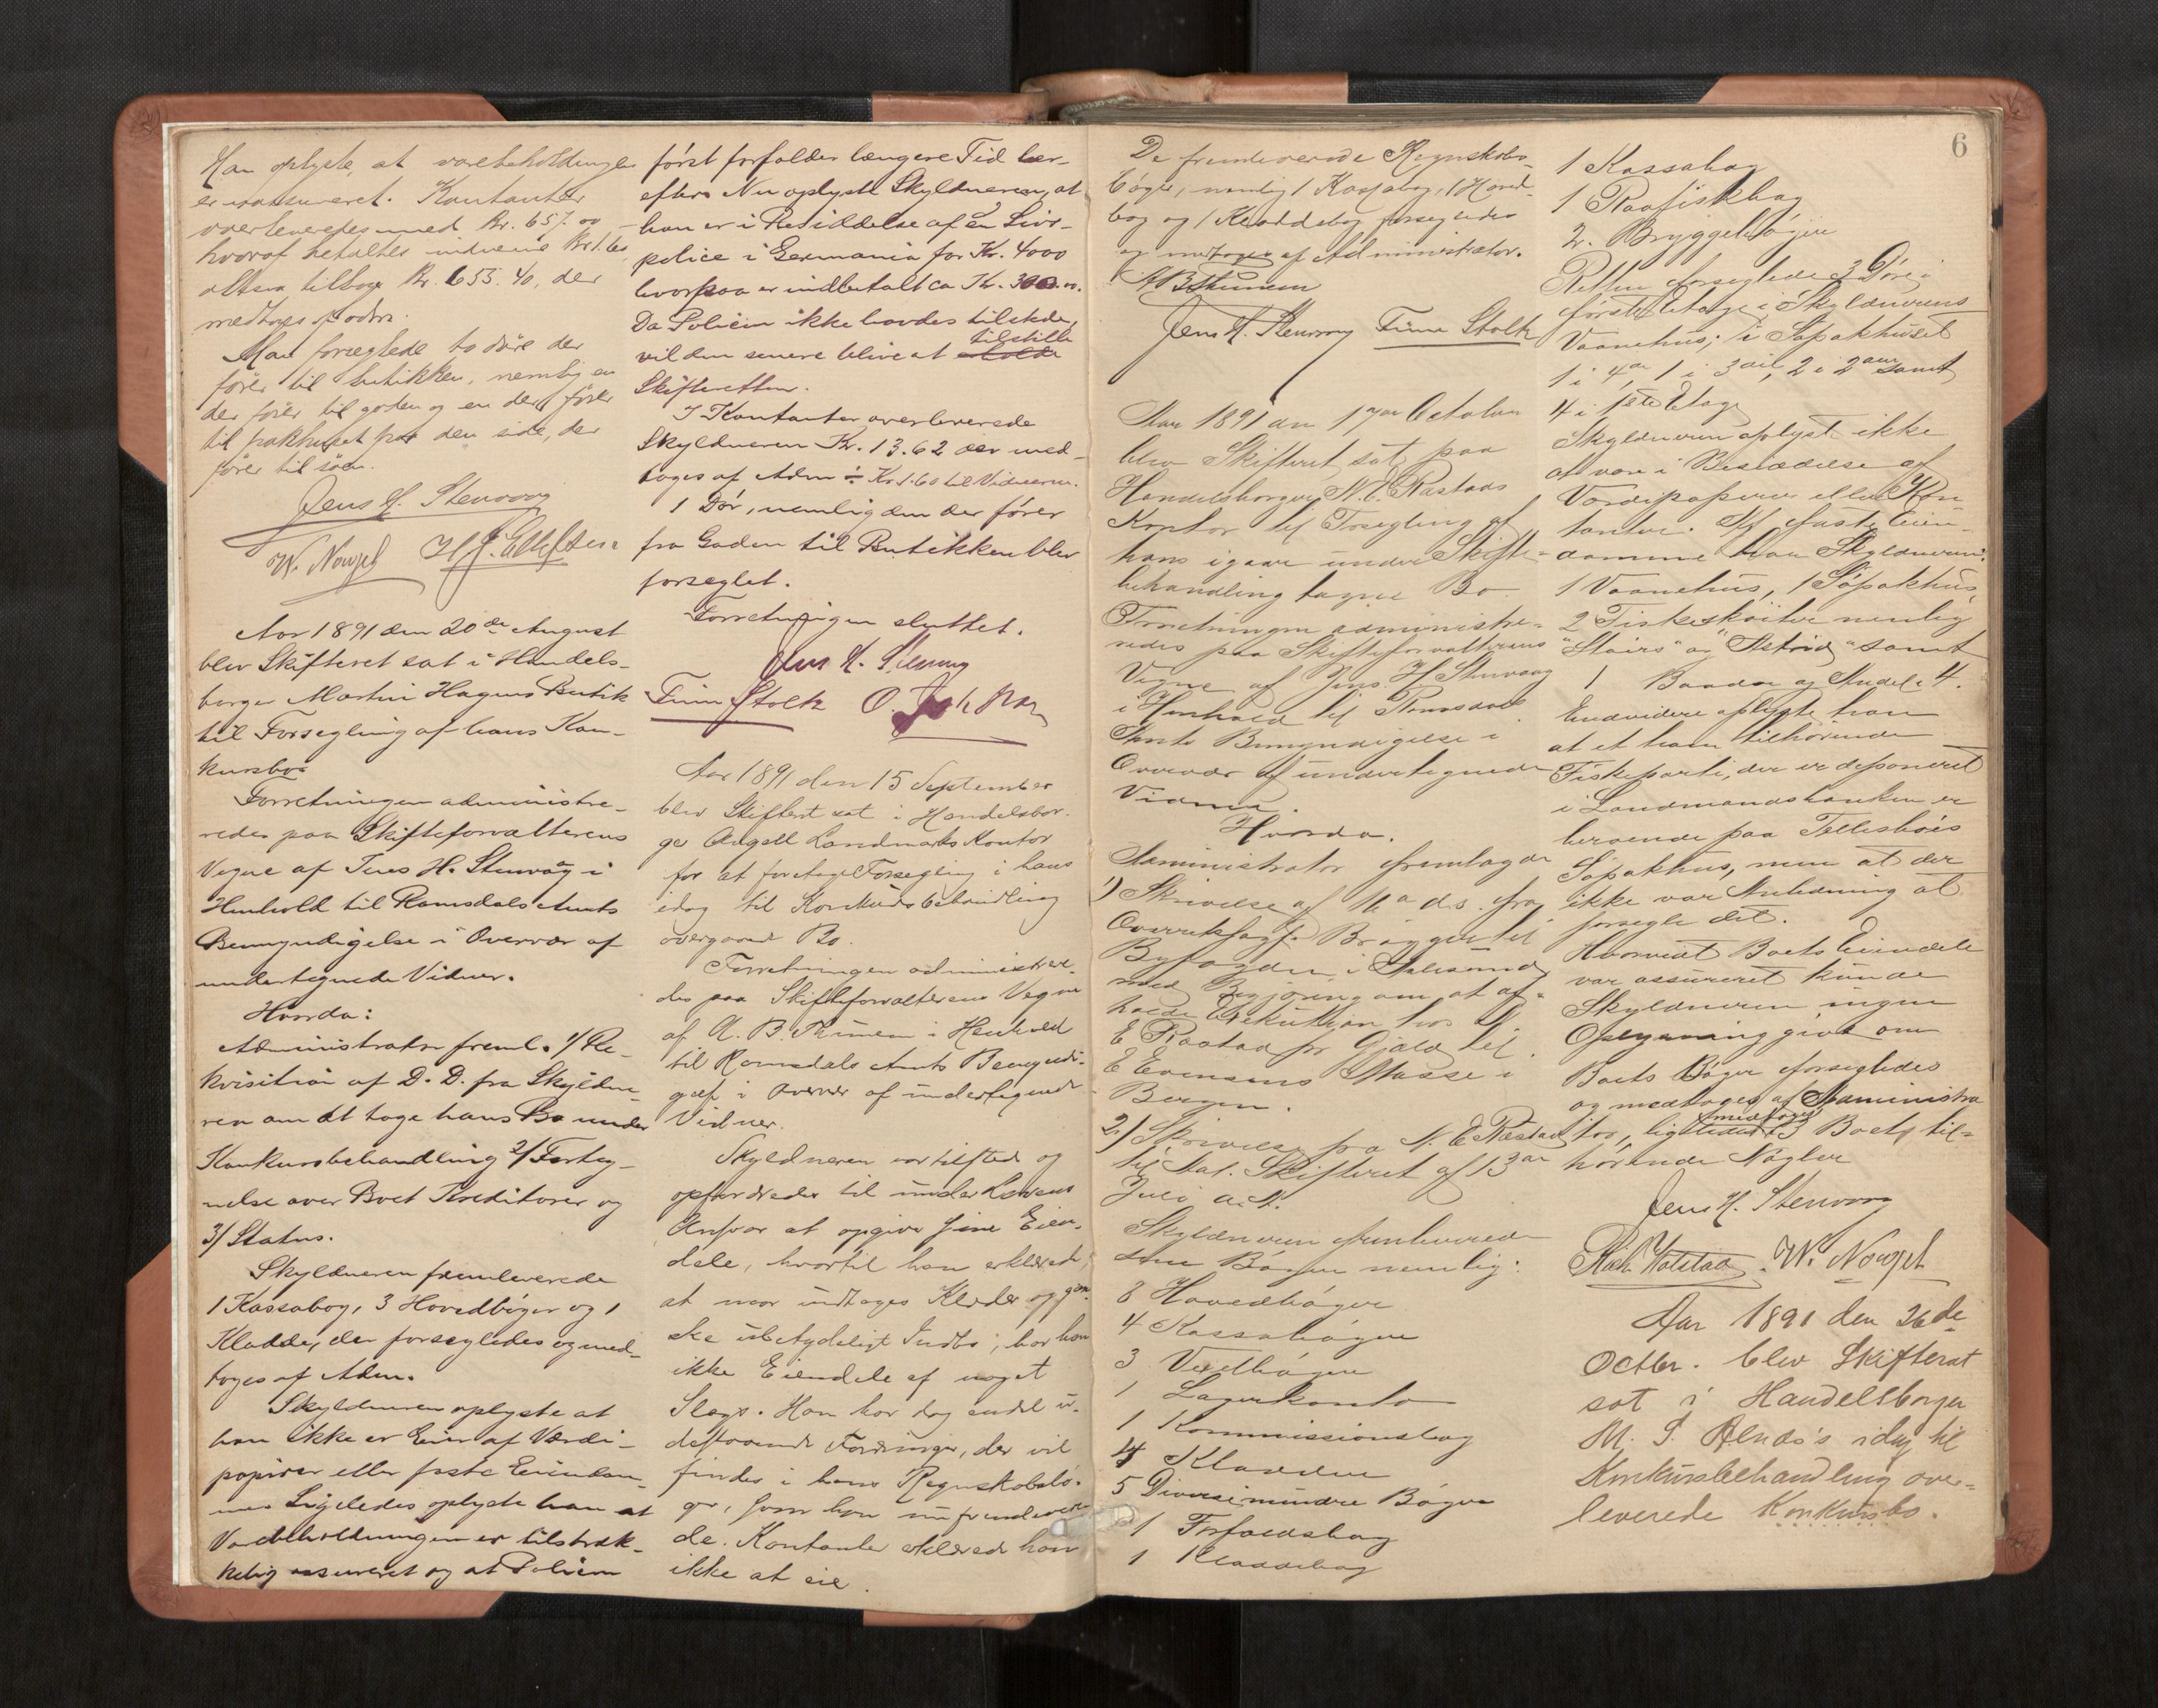 Han oplyste, at varebeholdningen
er assureret. Kontanter
overleveredes med Kr. 657.00
hvoraf betaltes vidnerne Kr 1.60
altsaa tilbage Kr. 655.40, der
medtoges af adm.
Man forseglede to døre der
fører til butikken, nemlig en
der fører til gaden og en der fører
til pakhuset paa den side, der
fører til søen.
Jens H. Stenvaag
W. Norvet H. J. Ellefsen
Aar 1891 den 20de August
blev Skifteret sat i Handels-
borger Martin Hagens Butik
til Forsegling af hans Kon-
kursbo.
Forretningen administre-
redes paa Skifteforvalterens
Vegne af Jens H. Stenvåg i
Henhold til Romsdals Amts
Bemyndigelse i Overvær af
undertegnede Vidner.
Hvorda:
Administrator freml. 1/ Re-
kvisition af D. D. fra Skyldne-
ren om at tage hans Bo under
Konkursbehandling 2/ Forteg-
nelse over Boet Kreditorer og
3/ Status.
Skyldneren fremleverede
1 Kassabog, 3 Hovedbøger og 1
Kladde, der forsegledes og med-
toges af Adm.
Skyldneren oplyste at
han ikke er Eier af Værdi-
papirer eller faste Eiendom-
me Ligeledes oplyste han at
Varebeholdningen er tilstræk-
kelig assureret og at Policen
først forfalder længere Tid her-
efter. Nu oplyste Skyldneren, at
han er i Besiddelse af en Livs-
police i Germania for Kr. 4000
hvorpaa er indbetalt ca Kr. 300.00.
Da Policen ikke havdes tilstede,
vil den senere blive at tilstille
Skifteretten.
I Kontanter overleverede
Skyldneren Kr. 13.62 der med-
toges af Adm ÷ Kr. 1.60 til Vidnerne.
1 Dør, nemlig den der fører
fra Gaden til Butikken blev
forseglet.
Forretningen sluttet.
Jens H. Stenvaag
Finn Stolk O.
Aar 1891 den 15 September
blev Skifteret sat i Handelsbor-
ger Angell Landmarks Kontor
for at foretage Forsegling i hans
idag til Konkursbehandling
overgaaede Bo.
Forretningen administrere-
des paa Skifteforvalterens Vegne
af A. B. i Henhold
til Romsdals Amts Bemyndi-
gelse i Overvær af undertegnede
Vidner.
Skyldneren var tilstede og
opfordredes til under Lovens
Ansvar at opgive sine Eien-
dele, hvortil han erklærede,
at naar undtages Klæder og gan-
ske ubetydeligt Indbo, har han
ikke Eiendele af noget
Slags. Han har dog endel u-
destaaende Fordringer, der vil
findes i hans Regnskabsbø-
ger, som han nu fremlevere-
de. Kontanter erklærede han
ikke at eie.
6
De fremleverede Regnskabs-
bøger, nemlig 1 Kassabog, 1 Hoved-
bog og 1 Kladdebog forsegledes
og medtoges af Administrator.
Jens H. Stenvaag Finn Stolk
Aar 1891 den 17de October
blev Skifteret sat paa
Handelsborger N. E. Rastads
Kontor til Forsegling af
hans igaar under Skifte-
behandling tagne Bo.
Forretningen administre-
redes paa Skifteforvalterens
Vegne af Jens H Stenvaag
i Henhold til Romsdals
Amts Bemyndigelse i
Overvær af undertegnede
Vidner.
Hvorda.
Administrator fremlagde
1) Skrivelse af 16de ds. fra
Overretssagf. Brøgger til
Byfogden i Aalesund
med Begjæring om at af-
holde Exekution hos N.
E Rastad for Gjæld til
E Evensens Masse i
Bergen.
2.) Skrivelse fra N. E Rastad
til Aal. Skifteret af 13de
Juli a. A.
Skyldneren fremleverede
sine Bøger nemlig:
8 Hovedbøger
4 Kassabøger
3 Vexelbøger
1 Lagerkonto
1 Kommissionsbog
4 Kladder
5 Diverse mindre Bøger
1 Forfaldsbog
1 Kladdebog
1 Kassabog
1 Raafiskbog
2. Bryggebøger
Retten forseglede 3 Døre i
første Etage i Skyldnerens
Vaanehus; i Søpakhuset
1 i 4de, 1 i 3die, 2 i 2den samt
4 i 1ste Etage
Skyldneren oplyste ikke
at være i Besiddelse af
Værdipapirer eller Kon-
tanter. Af faste Eien-
domme har Skyldneren:
1 Vaanehus, 1 Søpakhus,
2 Fiskeskøiter nemlig
"Stairs" og "Astrid" samt
1 Baade og Andel i 4.
Endvidere oplyste han
at et ham tilhørende
Fiskeparti, der er deponeret
i Landmandsbanken er
beroende paa Tellesbøs
Søpakhus, men at der
ikke var Anledning at
forsegle det.
Hvorvidt Boets Eiendele
var assureret kunde
Skyldneren ingen
Oplysning give om
Boets Bøger forsegledes
og medtoges af Administra
tor, ligeledes medtoges 3 Boets til-
hørende Nøgler
Jens H. Stenvaag
Rich Watstad. W. Norvet
Aar 1891 den 26de
Octbr. blev Skifteret
sat i Handelsborger
M. S. Alnæs's idag til
Konkursbehandling over-
leverede Konkursbo.